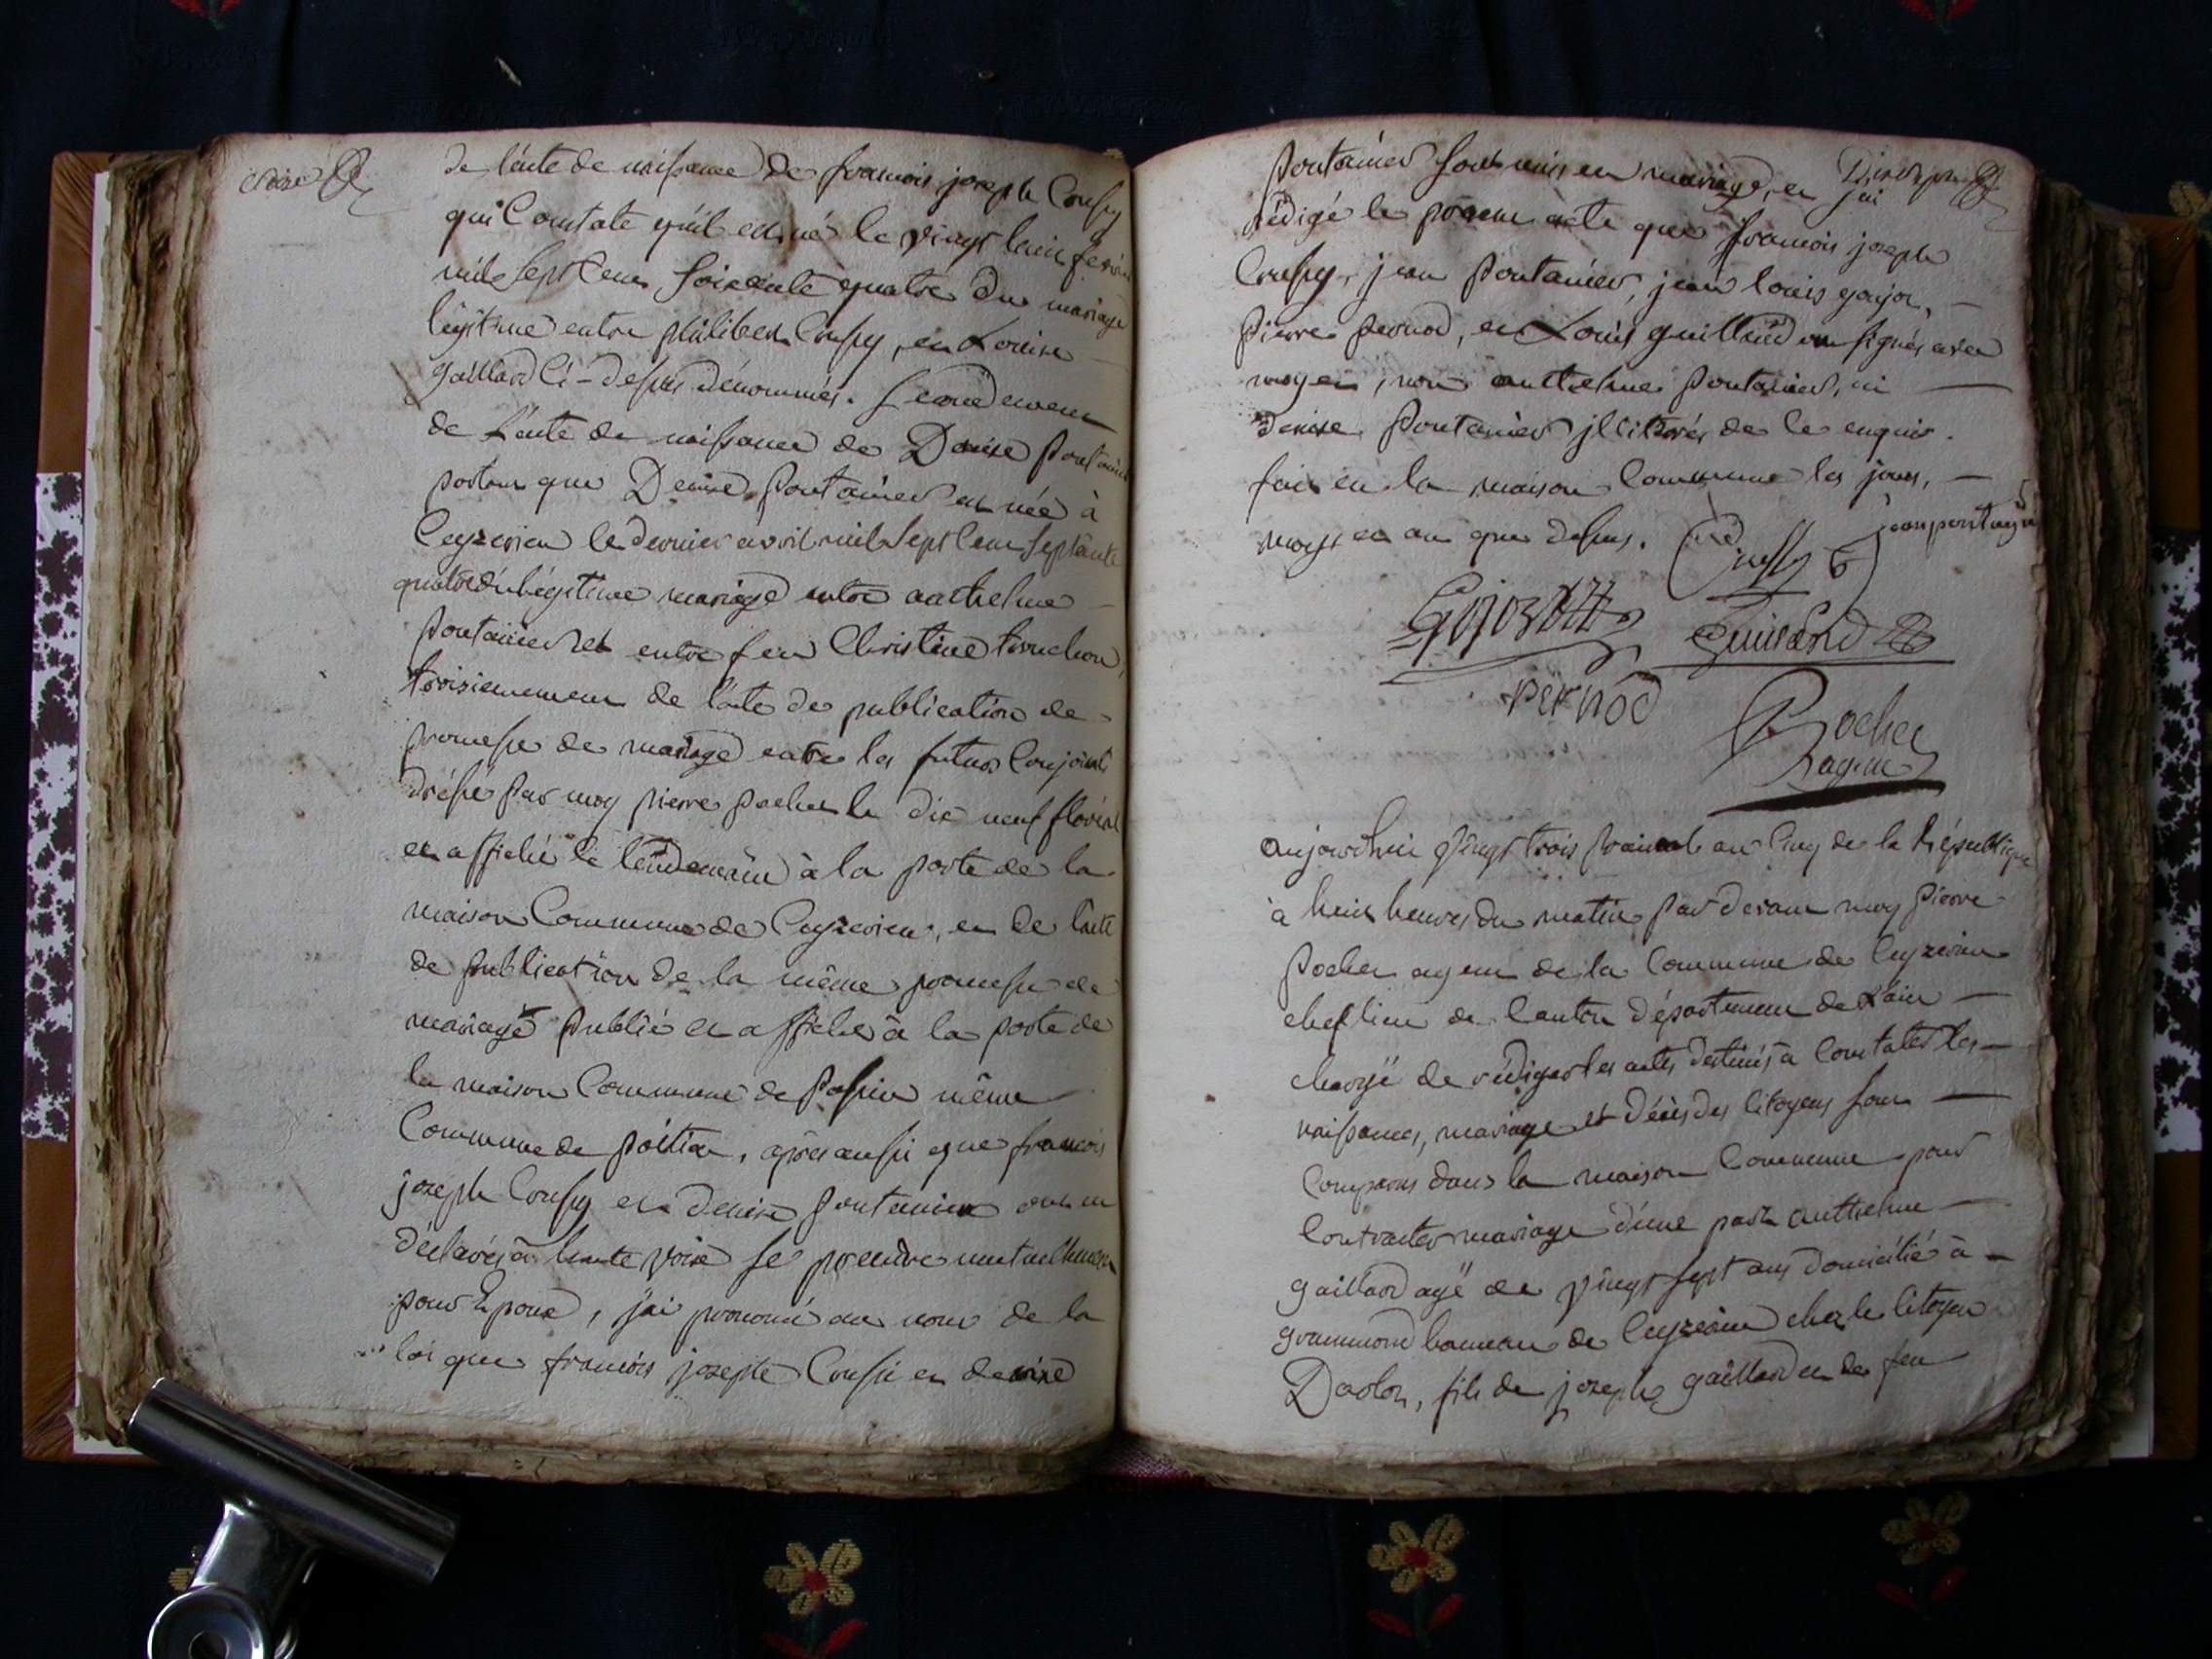 de l'acte de naissance de francois joseph Crussy
qui Constate qu'il est né le vingt huit fevrier
mil sept cent soixante quatre du mariage
légitime entre philibert Crussy, et Louise
gaillard ci-dessus dénommés. secondement
de l'acte de naissance de Denise pontanier
portant que Denise pontanier est née à
Ceyzerieu le dernier avril mil sept cent septante
quatre du légitime mariage entre anthelme
pontanier et entre feu Christine truchon,
troisiemement de l'acte de publication de
promesse de mariage entre les futurs conjoints
dréssé par moy pierre pochet le dix neuf floréal
et affiché le lendemain à la porte de la
maison Commune de Ceyzerieu, et de l'acte
de publication de la même promesse de
mariage publié et affiché à la porte de
la maison Commune de même
Commune de après aussi que francois
joseph Crussy et denise pontanier ont eu
déclarés à haute voix se prendre mutuellement
pour Epoux, j'ai prononcé au nom de la
loi que francois joseph Crussi et denise
pontanier sont unis en mariage, et j'ai
rédigé le présent acte que francois joseph
Crussy, jean pontanier, jean louis goujon,
pierre pernod, et Louis guilland ont signés avec
moy et non anthelme pontanier, ni
denise pontanier illiterés de ce enquis.
fait en la maison Commune les jours,
moys et an que dessus. jean pontanier
Crussy
Guilland
pernod
Pochet
agent
aujourdhui vingt trois prairial an cinq de la République
à huit heures du matin par devant moy pierre
pochet agent de la Commune de Ceyzerieu
chef lieu de Canton département de L'ain
chargé de rédiger les actes destinés à Constater les
naissances, mariage et décès des citoyens sont
comparus dans la maison Commune pour
contracter mariage d'une part anthelme
gaillard agé de vingt sept ans domicilié à
grammond hameau de Ceyzerieu chez le citoyen
fils de joseph gaillard et de feu